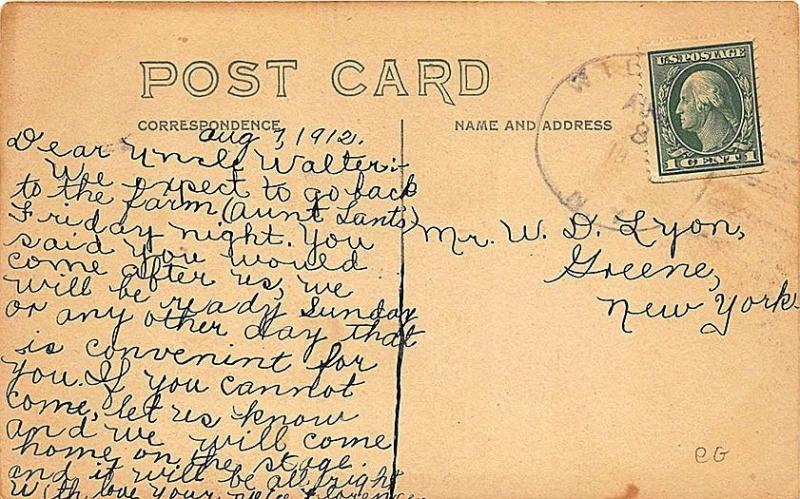 POST CARD
CORRESPONDENCE
NAME AND ADDRESS
U.S. POSTAGE
1 CENT 1
Aug 7, 1912.
Dear Uncle Walter:-
We expect to go back
to the farm (Aunt Lants)
Friday night. You
said you would
come after us, we
will be ready Sunday
or any other day that
is convenint for
you. If you cannot
come, let us know
and we will come
home on the stage
and it will be all right
With love your niece Florence
Mr. W. D. Lyon,
Greene,
New York
CG